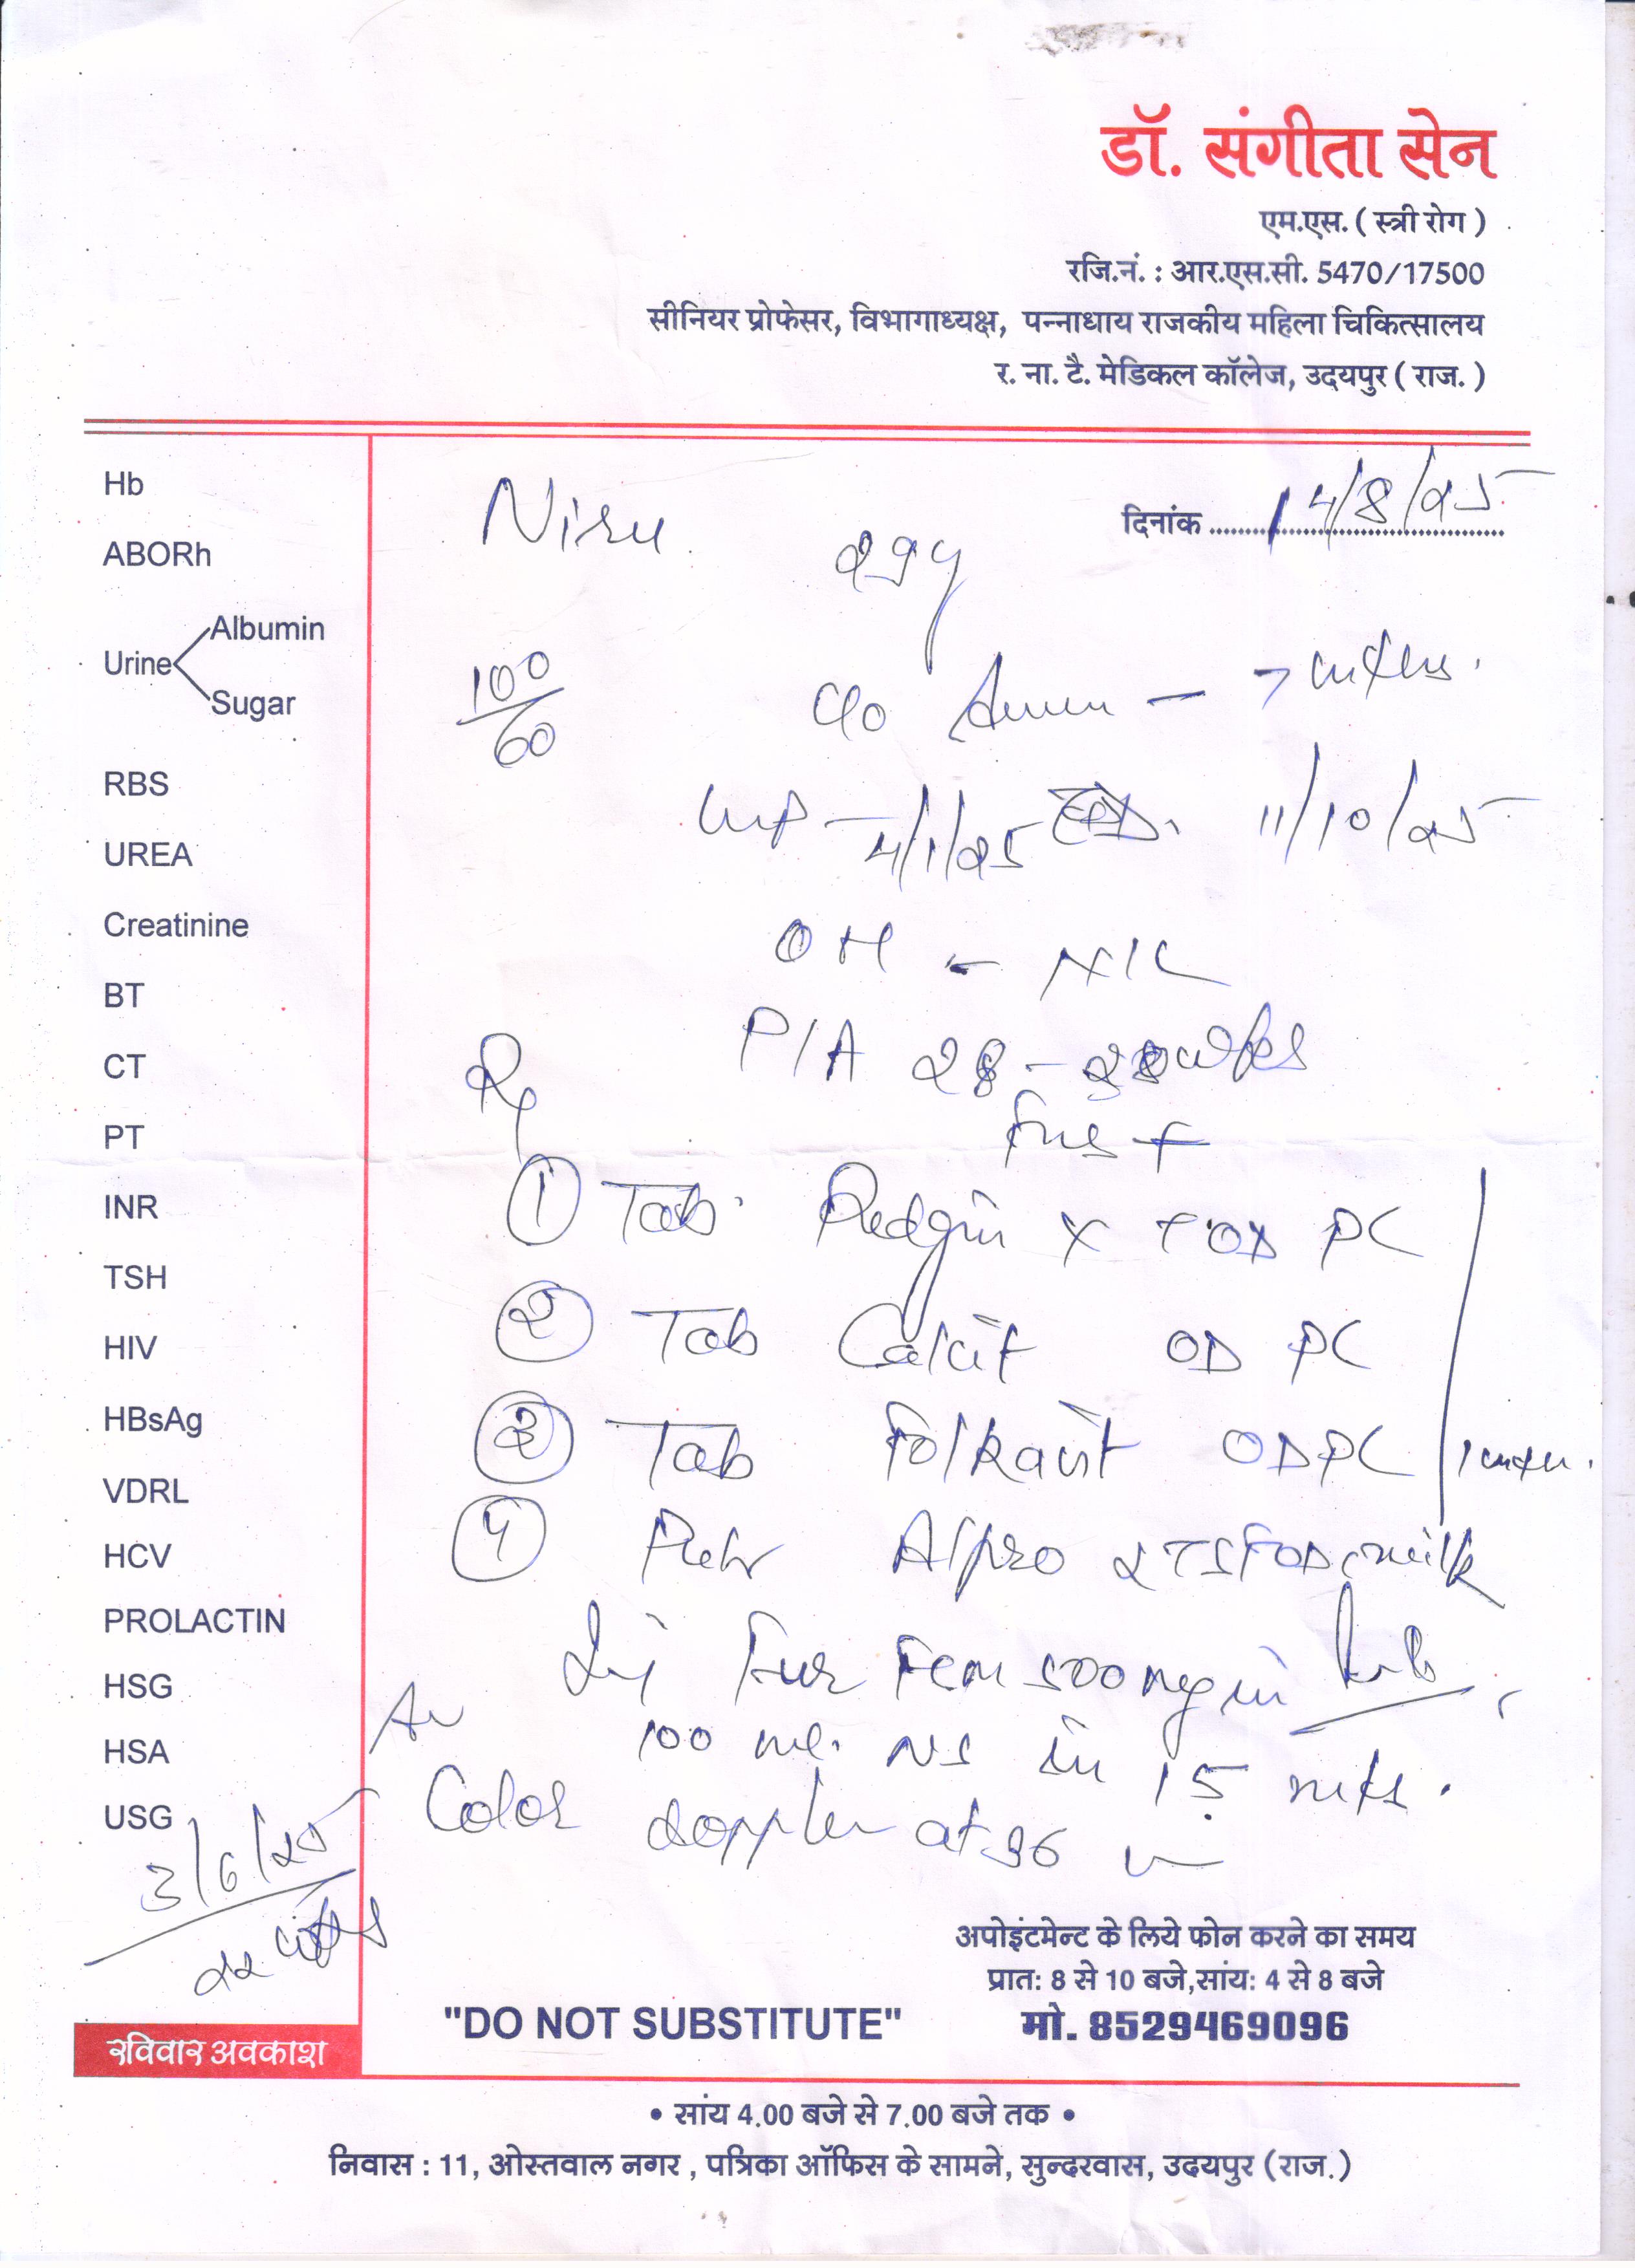 डॉ. संगीता सेन
एम.एस. ( स्त्री रोग )
रजि.नं. : आर.एस.सी. 5470/17500
सीनियर प्रोफेसर, विभागाध्यक्ष, पन्नाधाय राजकीय महिला चिकित्सालय
र. ना. टै. मेडिकल कॉलेज, उदयपुर ( राज. )
Hb
ABORh
Urine
Albumin
Sugar
RBS
UREA
Creatinine
BT
CT
PT
INR
TSH
HIV
HBsAg
VDRL
HCV
PROLACTIN
HSG
HSA
USG
3/6/25
22
रविवार अवकाश
Niru
29y
दिनांक 14/8/25
100/60
C/o Amen - 7
LMP - 4/1/25 EDD. 11/10/25
OH - N/C
P/A 28-
FHS +
Rx
① Tab. OD PC
② Tab OD PC
③ Tab Folkavit OD PC
④ Alpro 2TSF OD c milk
Inj Fur Fem 500 mg in
100 ml. NS in 15 mts.
Adv
Color doppler at 36 w
अपोइंटमेन्ट के लिये फोन करने का समय
प्रातः 8 से 10 बजे,सांयः 4 से 8 बजे
"DO NOT SUBSTITUTE"
मो. 8529469096
• सांय 4.00 बजे से 7.00 बजे तक •
निवास : 11, ओस्तवाल नगर , पत्रिका ऑफिस के सामने, सुन्दरवास, उदयपुर (राज.)